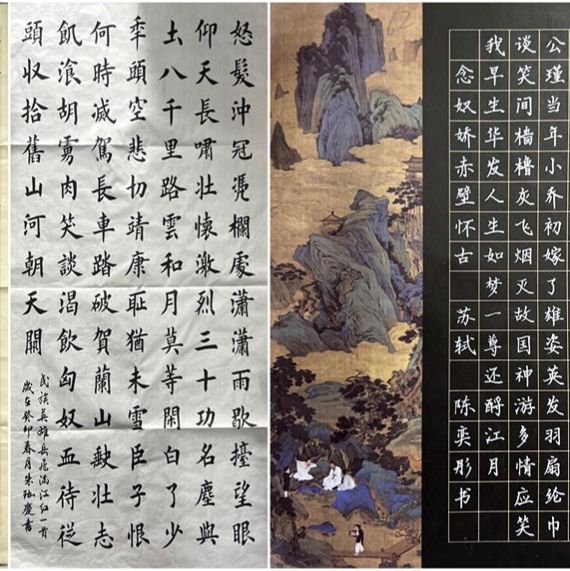 公瑾当年小乔初嫁了雄姿英发羽扇纶巾
谈笑间樯橹灰飞烟灭故国神游多情应笑
我早生华发人生如梦一尊还酹江月
念奴娇赤壁怀古 苏轼 陈奕彤书
62
怒髮沖冠凴欄處瀟瀟雨歇擡望眼
仰天長嘯壯懷激烈三十功名塵與
圡八千里路雲和月莫等閑白了少
秊頭空悲切靖康恥猶未雪臣子恨
何時滅駕長車踏破賀蘭山缺壯志
飢飡胡虜肉笑談渴飲匈奴血待從
頭収拾舊山河朝天闕
民族英雄岳飛滿江红一首
歲在癸卯春月朱慶書